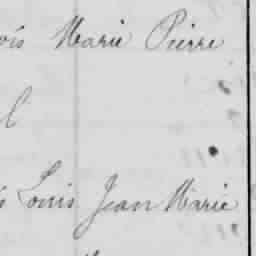 ois Marie Pierre
l
s Louis Jean Marie